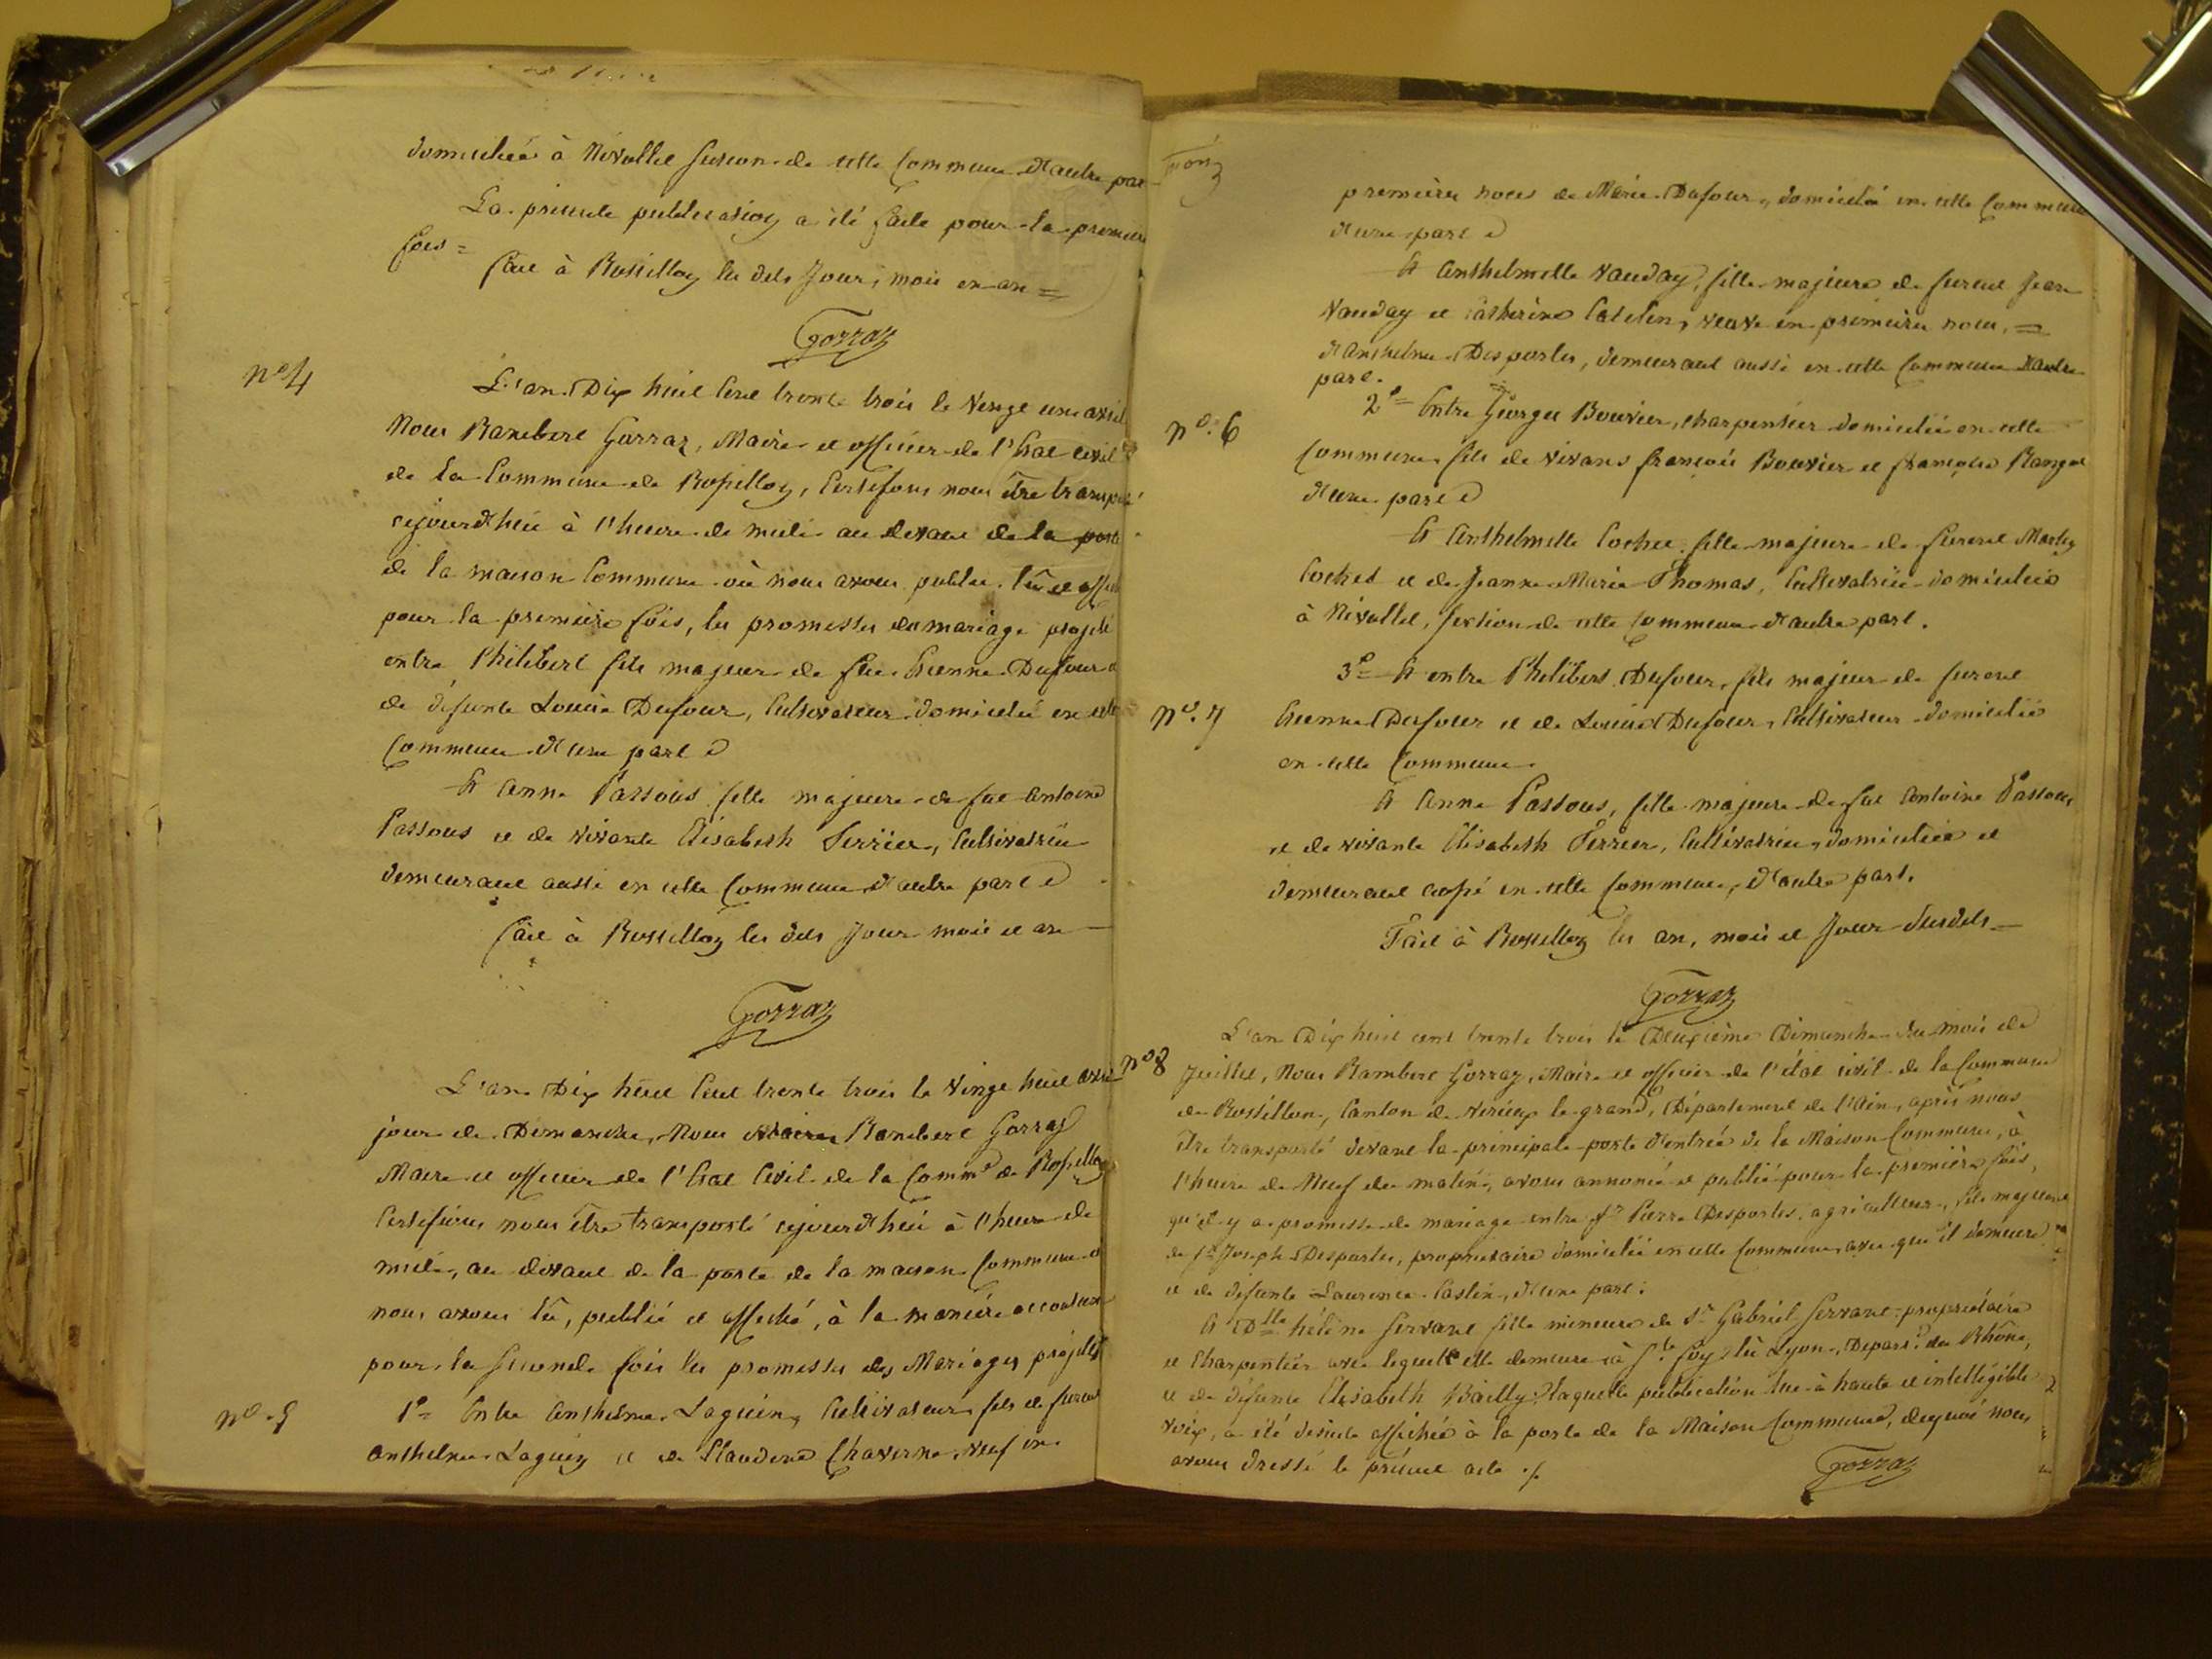 domiciliée à Nivollet section de cette Commune d'autre part
La présente publication a été faite pour la première
fois =
fait à Rossillon les dits Jour, mois et an =
Gorraz
n° 4
L'an Dix huit Cent trente trois le Vingt un avril
Nous Rambert Gorraz, Maire et officier de l'Etat civil
de la Commune de Rossillon, Certifions nous être transporté
cejourd'hui à l'heure de midi au devant de la porte
de la maison Commune où nous avons publié, lû et affiché
pour la première fois, les promesses de mariage projeté
entre Philibert fils majeur de feu Etienne Dufour et
de défunte Louise Dufour, Cultivateur domicilié en cette
Commune d'une part et
Et Anne Passous fille majeure de feu Antoine
Passous et de vivante Elisabeth Perrier, Cultivatrice
demeurant aussi en cette Commune d'autre part
fait à Rossillon les dits Jour mois et an
Gorraz
L'an Dix huit Cent trente trois le Vingt huit avril
jour de Dimanche, Nous Rambert Gorraz
Maire et officier de l'Etat Civil de la Comm. de Rossillon
Certifions nous être transporté cejourd'hui à l'heure de
midi, au devant de la porte de la maison Commune et
nous avons lû, publié et affiché, à la manière accoutumée
pour la seconde fois les promesses des Mariages projetés
n° 5
1° Entre Anthelme Laguin, Cultivateur fils de furent
Anthelme Laguin et de Claudine Chaverne, veuf en
premières noces de Marie Dufour, domicilié en cette Commune
d'une part et
Et Anthelmette Vauday, fille majeure de furent Jean
Vauday et Catherine Catelin, veuve en premières noces, =
d'Anthelme Desportes, demeurant aussi en cette Commune d'autre
part.
n° 6
2° Entre Georges Bouvier, charpentier domicilié en cette
Commune fils de vivans françois Bouvier et françoise
d'une part et
Et Anthelmette Cochet fille majeure de furent Martin
Cochet et de Jeanne Marie Thomas, Cultivatrice domiciliée
à Nivollet, section de cette Commune d'autre part.
3° Et entre Philibert Dufour, fils majeur de furent
n° 7
Etienne Dufour et de Louise Dufour, Cultivateur domicilié
en cette Commune
Et Anne Passous, fille majeure de feu Antoine Passous
et de vivante Elisabeth Perrier, Cultivatrice, domiciliée et
demeurant aussi en cette Commune, d'autre part.
Fait à Rossillon les an, mois et Jour susdits
Gorraz
n° 8
L'an Dix huit cent trente trois le Deuxième Dimanche du mois de
Juillet, Nous Rambert Gorraz, Maire et officier de l'état civil de la Commune
de Rossillon, Canton de Virieux le grand, Département de l'Ain, après nous
être transporté devant la principale porte d'entrée de la Maison Commune, à
l'heure de Neuf du matin, avons annoncé et publié pour la première fois,
qu'il y a promesse de mariage entre Sr Pierre Desportes, agriculteur, fils majeur
de Sr Joseph Desportes, propriétaire domicilié en cette Commune avec qui il demeure
et de défunte Laurence Castin, d'une part.
Et Dlle héléne Servant fille mineure de Sr Gabriel Servant, propriétaire
et Charpentier avec lequel elle demeure à Ste foy lès Lyon, Départ. du Rhône,
et de défunte Elisabeth Bailly, laquelle publication lue à haute et intelligible
voix, a été desuite affichée à la porte de la Maison Commune, dequoi nous
avons dressé le présent acte ./.
Gorraz